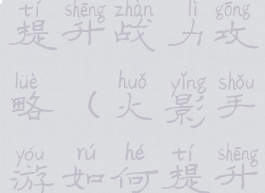 tí shēng zhàn lì gōng
提升战力攻
lüè huǒ yǐng shǒu
略（火影手
yóu rú hé tí shēng
游如何提升